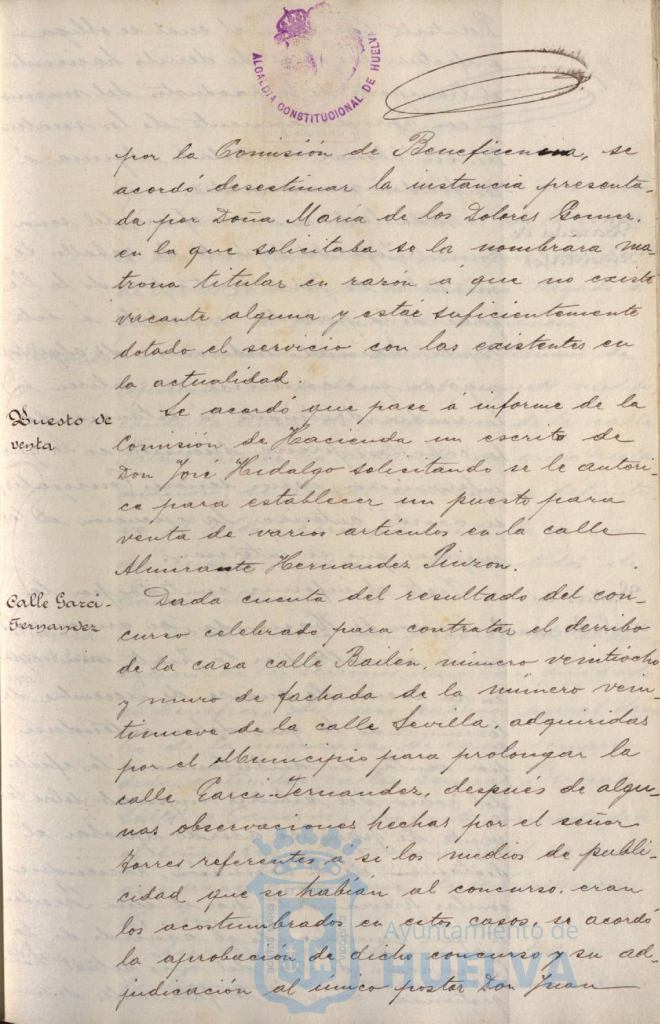 ALCALDIA CONSTITUCIONAL DE HUELVA
por la Comisión de Beneficencia, se
acordó desestimar la instancia presenta-
da por Doña María de los Dolores Gomez,
en la que solicitaba se la nombrara ma-
trona titular en razón á que no existe
vacante alguna y estar suficientemente
dotado el servicio con las existentes en
la actualidad.
Puesto de
venta
Se acordó que pase á informe de la
Comisión de Hacienda un escrito de
Don José Hidalgo solicitando se le autori-
ce para establecer un puesto para
venta de varios artículos en la calle
Almirante Hernandez Pinzon.
Calle Garci-
Fernandez
Dada cuenta del resultado del con-
curso celebrado para contratar el derribo
de la casa calle Bailén, número veintiocho
y muro de fachada de la número vein-
tinueve de la calle Sevilla, adquiridas
por el Municipio para prolongar la
calle Garci-Fernandez, después de algu-
nas observaciones hechas por el señor
Torres referentes á si los medios de publi-
cidad que se habían al concurso, eran
los acostumbrados en estos casos, se acordó
la aprobación de dicho concurso y su ad-
judicación al único postor Don Juan
Ayuntamiento de
HUELVA